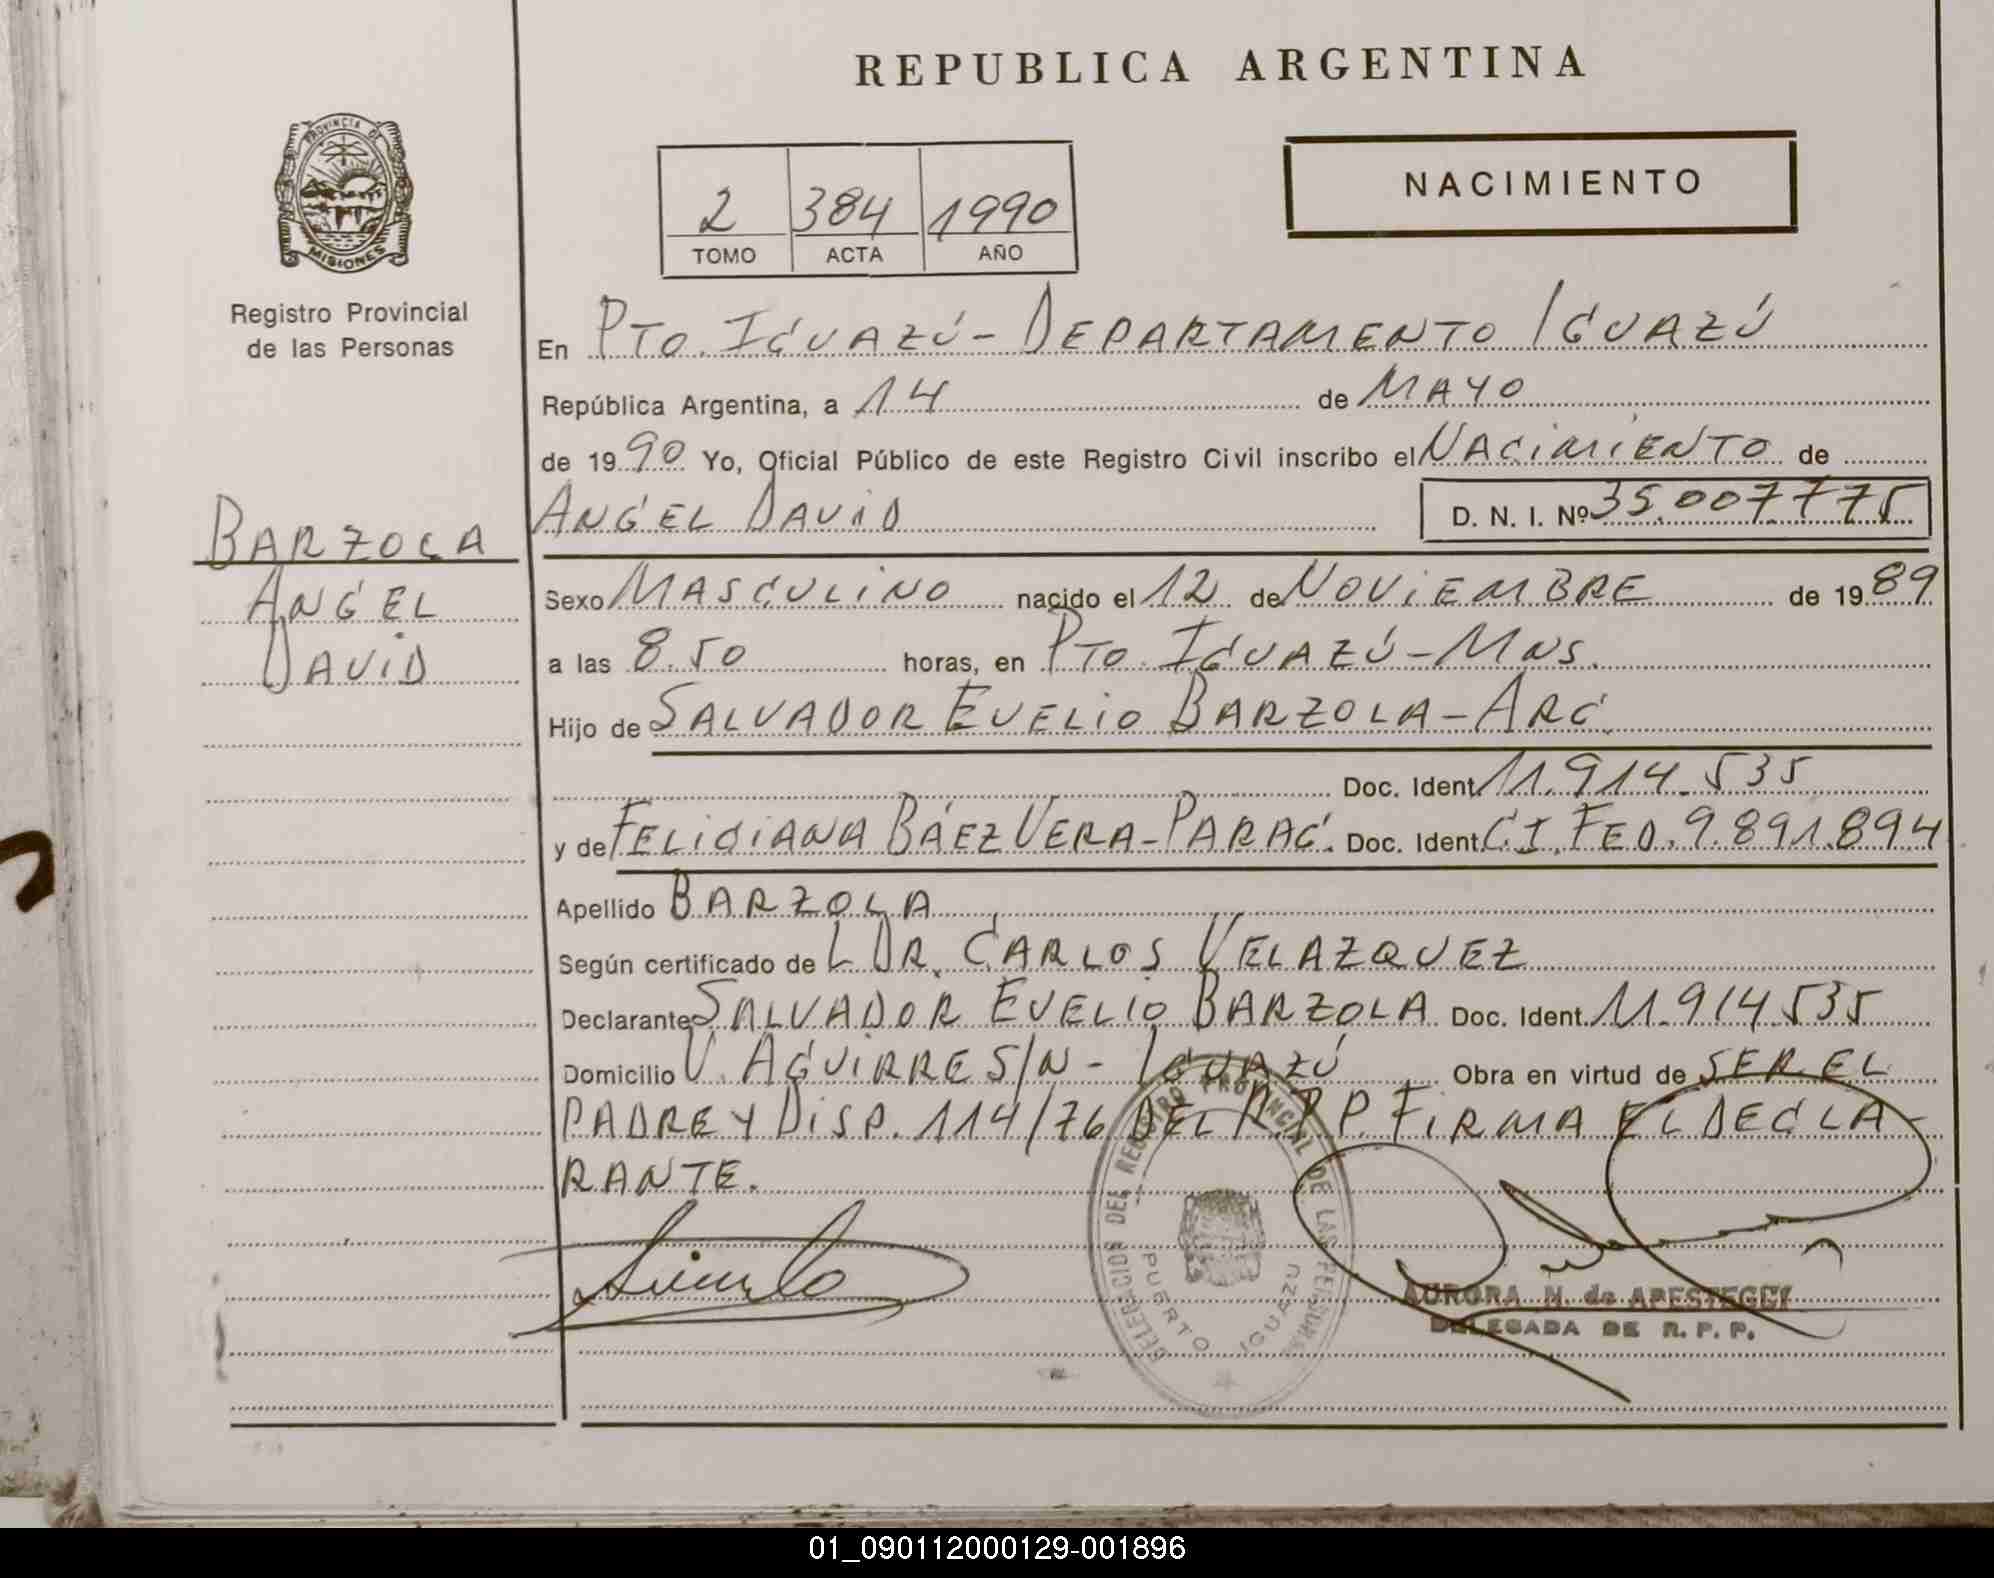 REPUBLICA ARGENTINA
PROVINCIA DE
MISIONES
Registro Provincial
de las Personas
2 384 1990
TOMO ACTA AÑO
NACIMIENTO
En PTO. IGUAZÚ - DEPARTAMENTO IGUAZÚ
República Argentina, a 14 de MAYO
de 1990 Yo, Oficial Público de este Registro Civil inscribo el NACIMIENTO de
ANGEL DAVID D. N. I. Nº 35.007.775
BARZOLA
ANGEL
DAVID
Sexo MASCULINO nacido el 12 de NOVIEMBRE de 1989
a las 8.50 horas, en PTO. IGUAZÚ - MNS.
Hijo de SALVADOR EVELIO BARZOLA - ARG.
Doc. Ident. 11.914.535
y de FELICIANA BÁEZ VERA - PARAG. Doc. Ident. C.I. FED. 9.891.894
Apellido BARZOLA
Según certificado de L DR. CARLOS VELAZQUEZ
Declarante SALVADOR EVELIO BARZOLA Doc. Ident. 11.914.535
Domicilio V. AGUIRRE S/N - IGUAZÚ Obra en virtud de SER EL
PADRE Y DISP. 114/76 DEL R.P.P. FIRMA EL DECLA-
RANTE.
DELEGACION DEL REGISTRO PROVINCIAL DE LAS PERSONAS
PUERTO IGUAZU
AURORA N. de APESTEGUY
DELEGADA DE R. P. P.
01_090112000129-001896